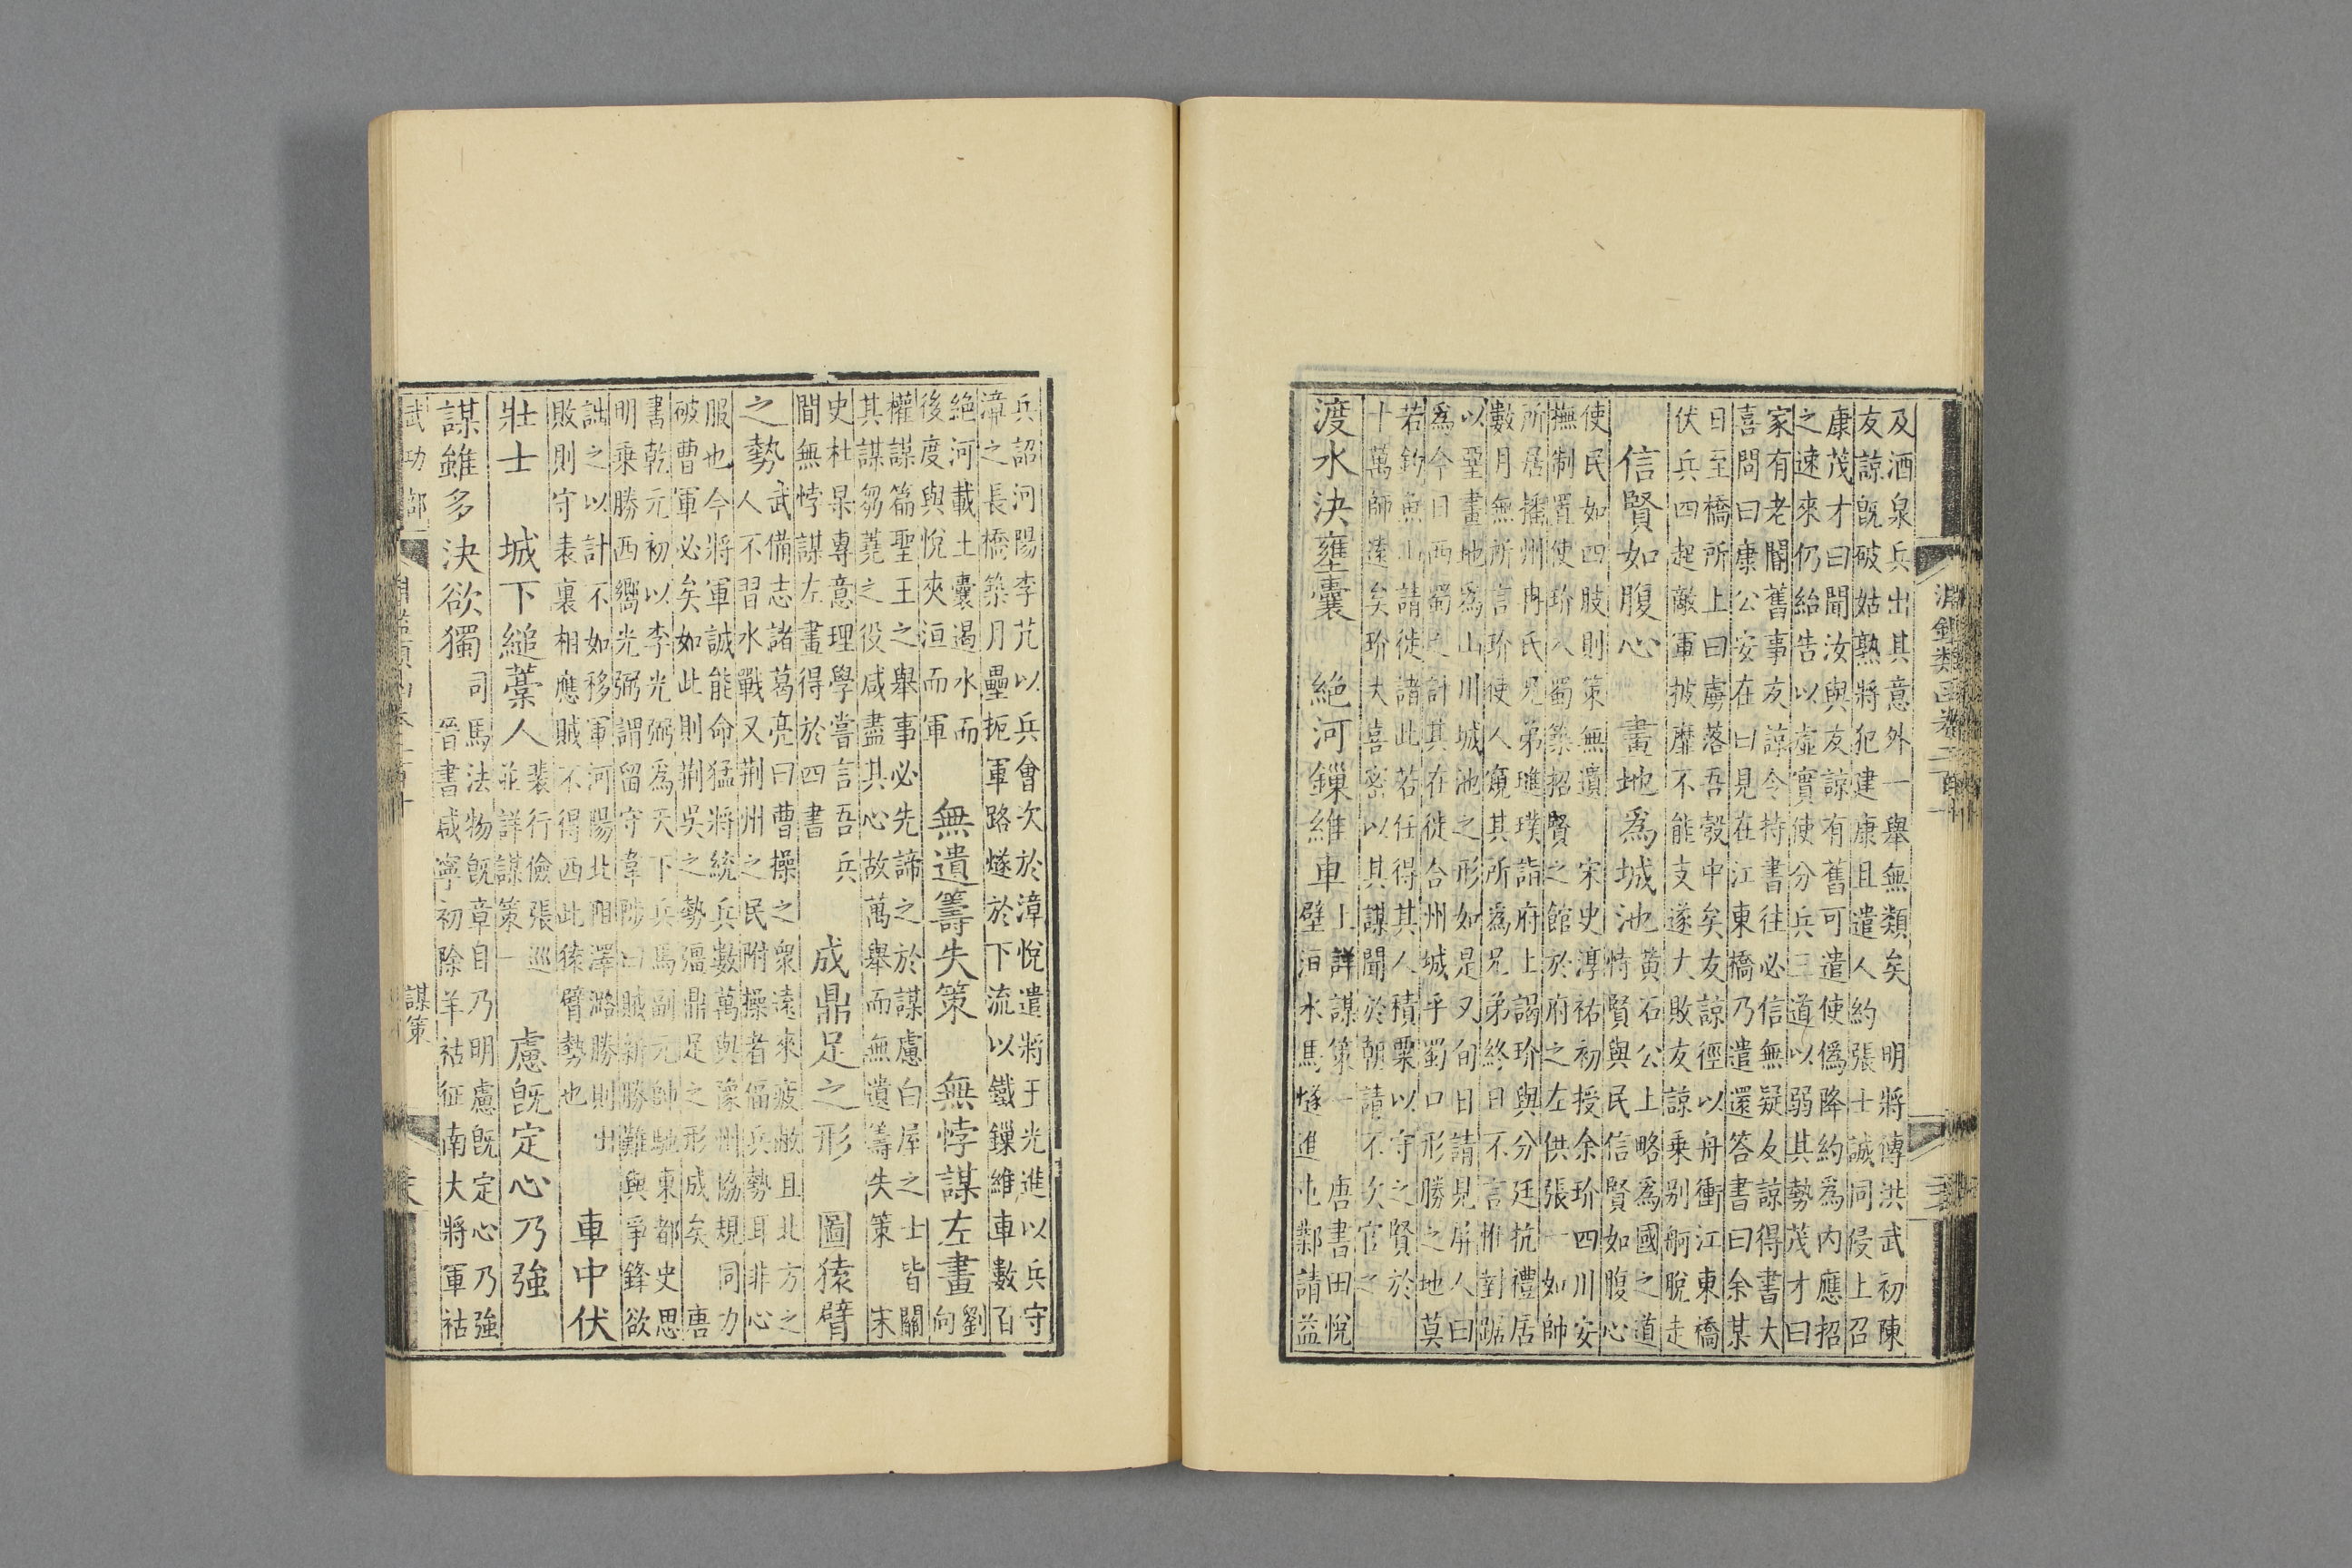 淵鑑類函卷二百十 三
及酒泉兵出其意外一舉無類矣　明將傳洪武初陳
友諒既破姑熟將犯建康且遣人約張士誠同侵上召
康茂才曰聞汝與友諒有舊可遣使偽降約為内應招
之速來仍紿告以虛實使分兵三道以弱其勢茂才曰
家有老閽舊事友諒今持書往必信無疑友諒得書大
喜問曰康公安在曰見在江東橋乃遣還答書曰余某
日至橋所上曰虜落吾彀中矣友諒徑以舟衝江東橋
伏兵四起敵軍披靡不能支遂大敗友諒乘別舸脫走
信賢如腹心　畫地為城池
黃石公上略為國之道
恃賢與民信賢如腹心
使民如四肢則策無遺　宋史淳祐初授余玠四川安
撫制置使玠入蜀築招賢之館於府之左供張一如帥
所居播州冉氏兄弟璡璞詣府上謁玠與分廷抗禮居
數月無所言玠使人窺其所為兄弟終日不言惟對踞
以堊畫地為山川城池之形如是又旬日請見屏人曰
為今日西蜀之計其在徙合州城乎蜀口形勝之地莫
若釣魚山請徙諸此若任得其人積粟以守之賢於
十萬師遠矣玠大喜密以其謀聞於朝請不次官之
渡水決壅囊　絕河鏁維車
上詳謀策一　唐書田悅
壁洹水馬燧進屯鄴請益
兵詔河陽李芃以兵會次於漳悅遣將王光進以兵守
漳之長橋築月壘扼軍路燧於下流以鐵鏁維車數百
絕河載土囊遏水而
後度與悅夾洹而軍
無遺籌失策　無悖謀左畫
劉
向
權謀篇聖王之舉事必先諦之於謀慮白屋之士皆關
其謀芻蕘之役咸盡其心故萬舉而無遺籌失策　宋
史杜杲專意理學嘗言吾兵
間無悖謀左畫得於四書
成鼎足之形　圖猿臂
之勢
武備志諸葛亮曰曹操之衆遠來疲敝且北方之
人不習水戰又荆州之民附操者偪兵勢耳非心
服也今將軍誠能命猛將統兵數萬與豫州協規同力
破曹軍必矣如此則荆吳之勢彊鼎足之形成矣　唐
書乾元初以李光弼為天下兵馬副元帥馳東都史思
明乘勝西嚮光弼謂留守韋陟曰賊新勝難與爭鋒欲
詘之以計不如移軍河陽北阻澤潞勝則出
敗則守表裏相應賊不得西此猿臂勢也
車中伏
壯士　城下縋藁人
裴行儉張巡
並詳謀策一
慮既定心乃強
謀雖多決欲獨
司馬法物既章自乃明慮既定心乃強
晉書咸寧初除羊祜征南大將軍祜
武功部
謀策